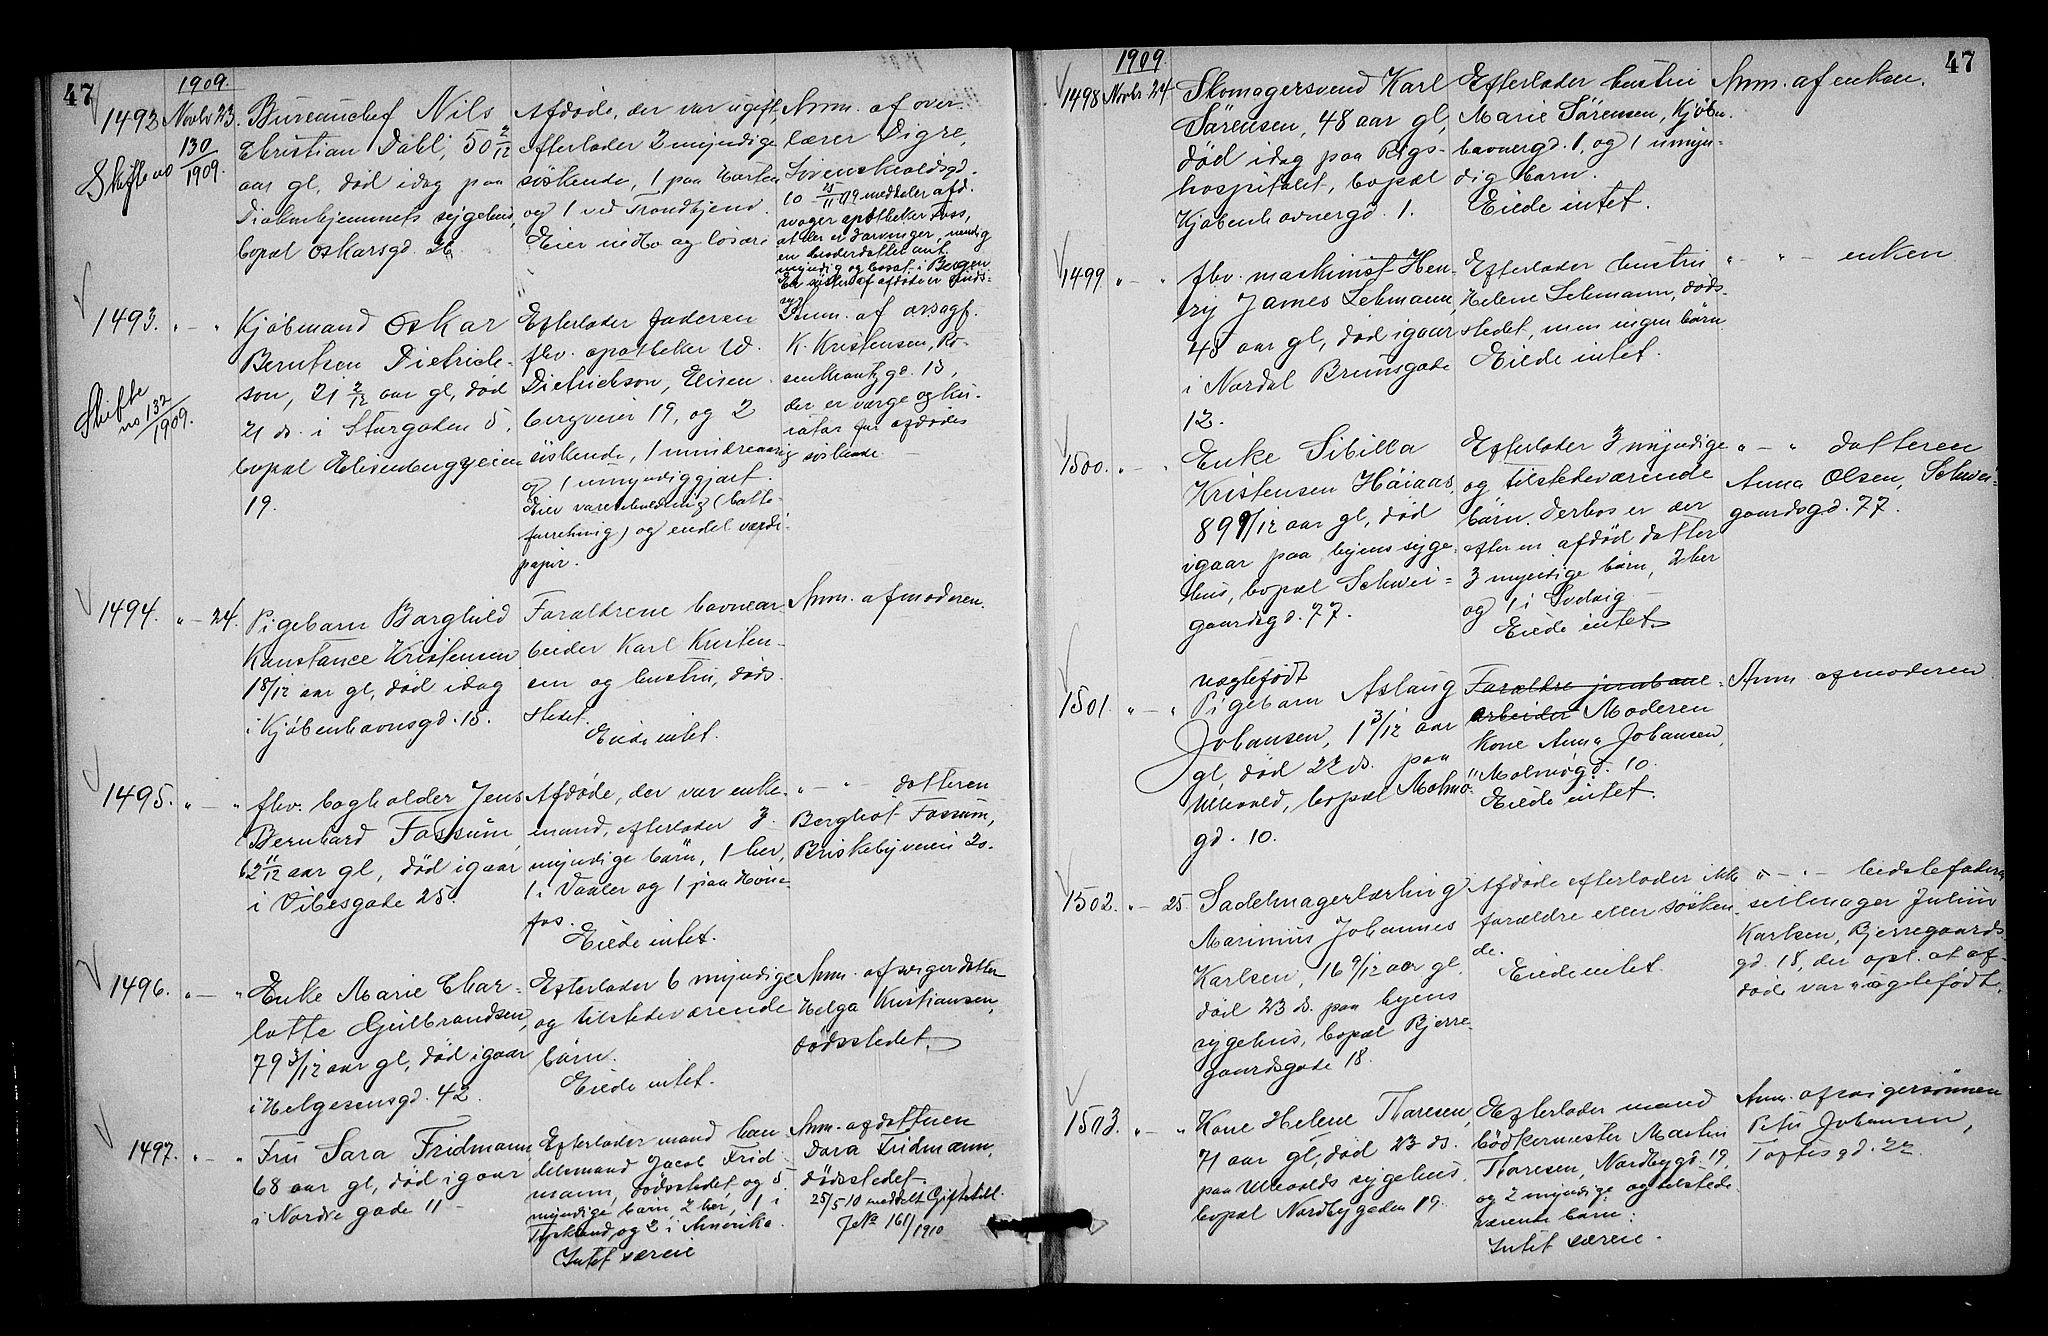 47
1909.
1492 Novbr 23. Bureauchef Nils
Christian Dahl, 50 2/12
aar gl, död idag paa
Diakonhjemmets sygehus,
bopæl Oskarsgd. 26.
Skifte no 130/1909.
Afdöde, der var ugift
efterlader 2 myndige
söskende, 1 paa Horten
og 1 ved Trondhjem.
Eier indbo og lösöre
Anm. af over
lærer Digre,
10
meddeler afd.
svoger apotheker Foss,
at der er 3 arvinger, nemlig
en broderdatter
myndig og bosat i Bergen
En söster af afdöde er sinds-
syg
1493. " — " Kjöbmand Oskar
Berntsen Dietrich-
son, 21 2/12 aar gl, död
21 ds. i Storgaden 5,
bopæl Elisenbergveien
19.
Skifte no 132/1909.
Efterlader faderen
fhv. apotheker W.
Dietrichson, Elisen-
bergveien 19, og 2
söskende, 1 mindreaarig
og 1 umyndiggjort.
Eier varebeholdning (hatte-
forretning) og endel værdi-
papir.
Anm. af orsagf.
K. Kristensen, Ro-
senkrantzgd. 15,
der er værge og ku-
rator for afdödes
söskende. —
1494. " — 24. Pigebarn Borghild
Konstance Kristensen
1 8/12 aar gl, död idag
i Kjöbenhavnsgd. 15.
Forældrene havnear-
beider Karl Kristen-
sen og hustru, döds-
stedet.
Eiede intet.
Anm. af moderen.
1495. " — " fhv. bogholder Jens
Bernhard Fossum,
62 11/12 aar gl, död igaar
i Vibesgade 25.
Afdöde, der var enke-
mand, efterlader 3
myndige börn, 1 her,
1 i Vaaler og 1 paa Höne-
fos.
Eiede intet.
" — " datteren
Bergliot Fossum,
Briskebyveien 20.
1496. " — " Enke Marie Char-
lotte Gulbrandsen,
79 3/12 aar gl, död igaar
i Helgesensgd. 42
Efterlader 6 myndige
og tilstedeværende
börn.
Eiede intet.
Anm. af svigerdatter
Helga Kristiansen,
dödsstedet.
1497. " — " Fru Sara Fridmann
68 aar gl, död igaar
i Nordre gade 11 —
Efterlader mand han-
delsmand Jacob Frid-
mann, dödsstedet og 5
myndige börn, 2 her, 1 i
Tyskland, og 2 i Amerika.
Intet særeie
Anm. af datteren
Dora Fridmann,
dödsstedet.
25/5 10 meddelt Giftetill.
J No 161/1910
47
1909.
1498 Novbr. 24 Skomagersvend Karl
Sörensen, 48 aar gl,
död idag paa Rigs-
hospitalet, bopæl
Kjöbenhavnergd. 1.
Efterlader hustru
Marie Sörensen, Kjöben-
havnergd. 1, og 1 umyn-
dig barn.
Eiede intet.
Anm. af enken.
1499 " — " fhv. maskinist Hen-
ry James Lehmann,
48 aar gl, död igaar
i Nordal Brunsgade
12.
Efterlader hustru
Helene Lehmann, döds-
stedet, men ingen börn.
Eiede intet.
" — " — enken
1500. " — " Enke Sibilla
Kristensen Höiaas,
89 9/12 aar gl, död
igaar paa byens syge-
hus, bopæl Schwei-
gaardsgd. 77.
Efterlader 3 myndige
og tilstedeværende
börn. Derhos er der
efter en afdöd datter
3 myndige börn, 2 her
og 1 i Solvig —
Eiede intet.
" — " datteren
Anna Olsen, Schwei-
gaardsgd. 77.
1501. " — " uægtefödt
Pigebarn Aslaug
Johansen, 1 3/12 aar
gl, död 22 ds. paa
Ullevold, bopæl Malmö-
gd. 10.
Forældre jernbane-
arbeider Moderen
Kone Anna Johansen,
Malmögd. 10.
Eiede intet.
Anm. af moderen
1502. " — 25. Sadelmagerlærling
Marinius Johannes
Karlsen, 16 9/12 aar gl,
död 23 ds. paa byens
sygehus, bopæl Bjerre-
gaardsgade 18.
Afdöde efterlader ikke
forældre eller sösken-
de.
Eiede intet.
" — " — bedstefaderen
seilmager Julius
Karlsen, Bjerregaards-
gd. 18, der opl. at af-
döde var uægtefödt.
1503. " — " Kone Helene Thoresen,
71 aar gl, död 23 ds.
paa Ullevolds sygehus,
bopæl Nordbygaden 19.
Efterlader mand
bödkermester Martin
Thoresen, Nordbygd. 19,
og 2 myndige og tilstede-
værende börn.
Intet særeie.
Anm. af svigersönnen
Petter Johansen,
Toftesgd. 22